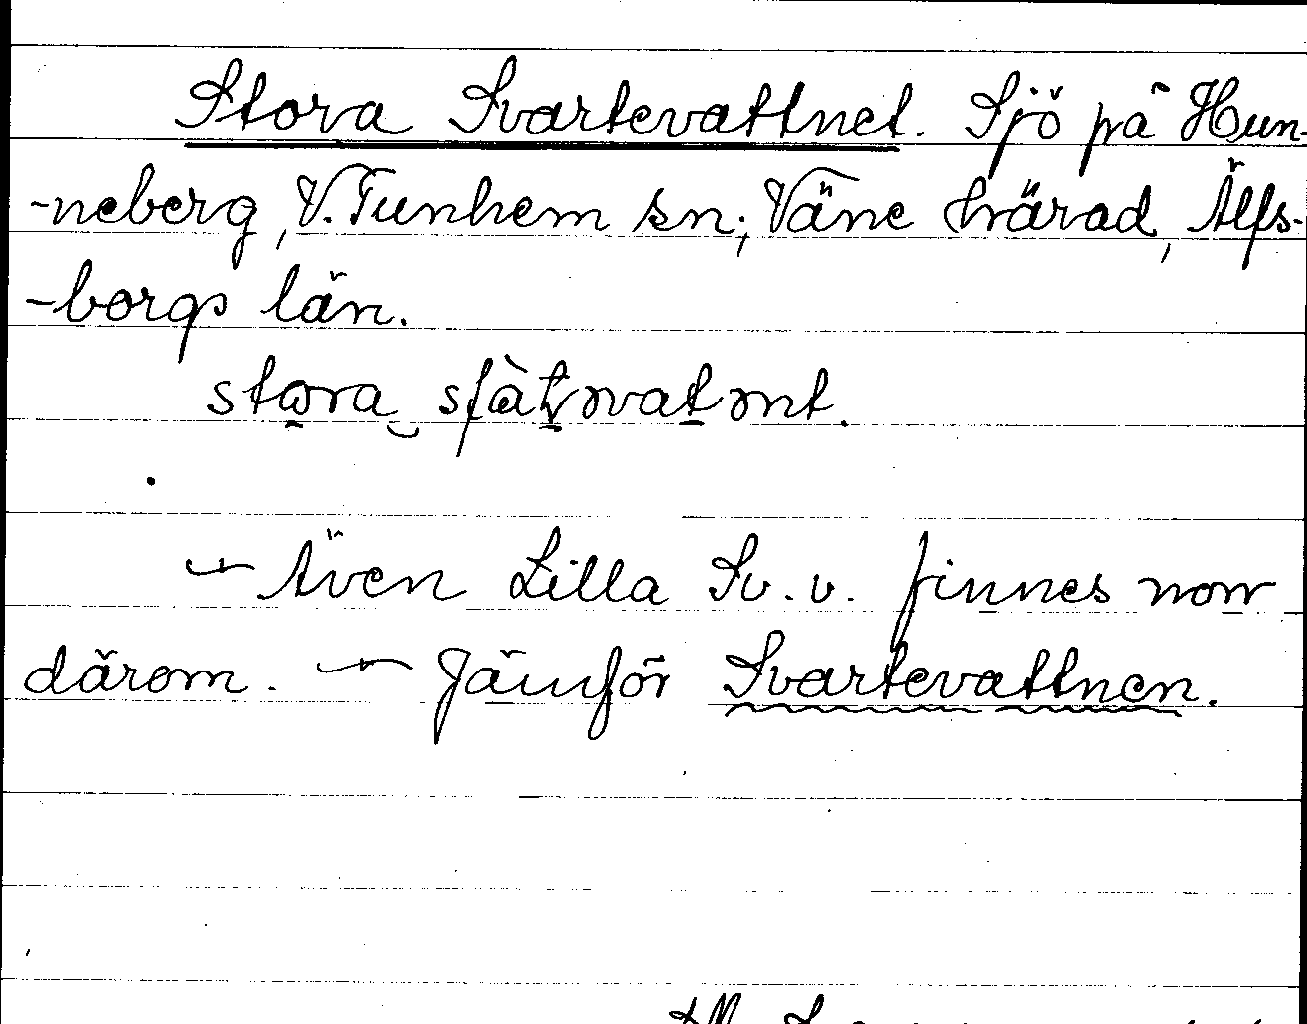 Stora Svartevattnet. Sjö på Hun-
-neberg, V. Tunhem sn; Väne härad, Älfs-
-borgs län.
– Även Lilla Sv. v. finnes norr
därom. – Jämför Svartevattnen.